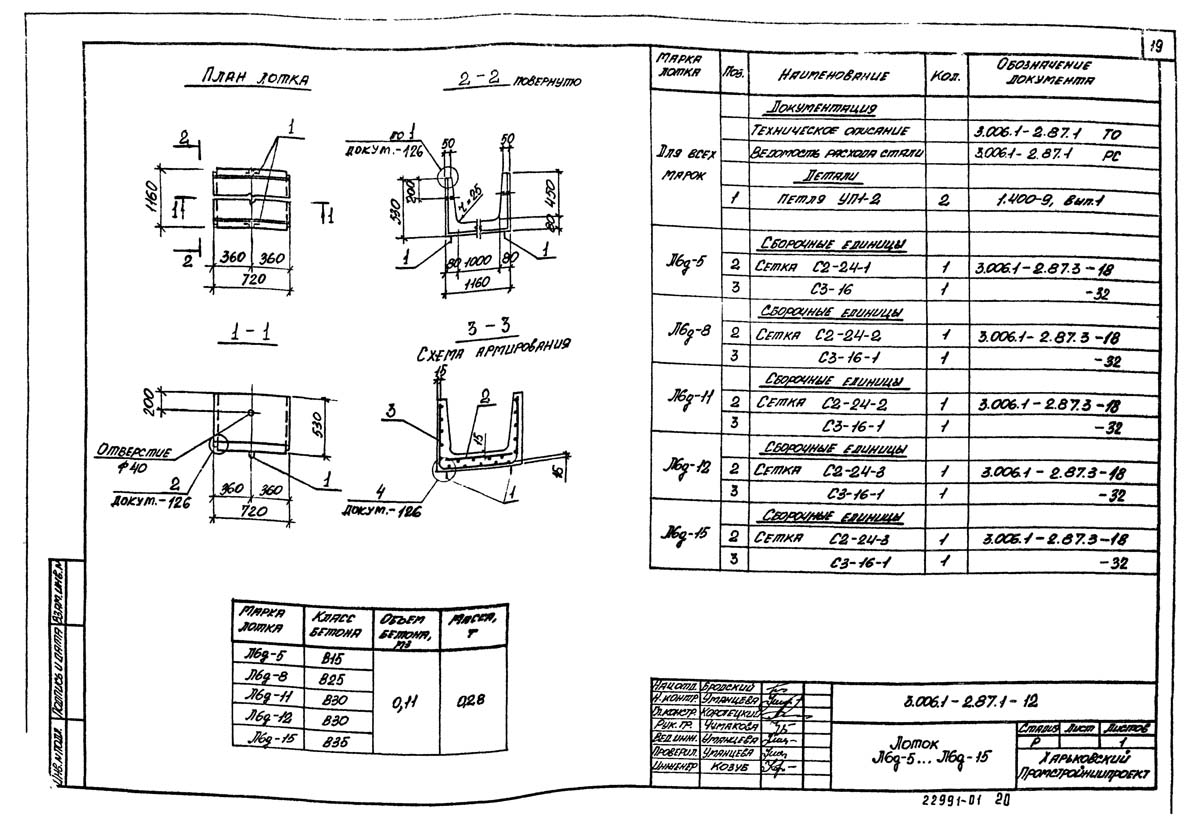 19
План лотка
2
1
1160
1
1
2
360 360
720
2-2 повернуто
по 1
докум.-126
50
50
200
530
r=25
450
80
1
1
80 1000 80
1160
1-1
200
530
Отверстие
ф40
1
2
докум.-126
360 360
720
3-3
Схема армирования
15
3
2
15
4
докум.-126
1
Марка лотка Поз. Наименование Кол. Обозначение документа
Для всех марок
Документация
Техническое описание 3.006.1-2.87.1 ТО
Ведомость расхода стали 3.006.1-2.87.1 РС
Детали
1 Петля УП1-2 2 1.400-9, вып.1
Л6д-5
Сборочные единицы
2 Сетка С2-24-1 1 3.006.1-2.87.3-18
3 С3-16 1 -32
Л6д-8
Сборочные единицы
2 Сетка С2-24-2 1 3.006.1-2.87.3-18
3 С3-16-1 1 -32
Л6д-11
Сборочные единицы
2 Сетка С2-24-2 1 3.006.1-2.87.3-18
3 С3-16-1 1 -32
Л6д-12
Сборочные единицы
2 Сетка С2-24-3 1 3.006.1-2.87.3-18
3 С3-16-1 1 -32
Л6д-15
Сборочные единицы
2 Сетка С2-24-3 1 3.006.1-2.87.3-18
3 С3-16-1 1 -32
Марка лотка Класс бетона Объем бетона, м3 Масса, т
Л6д-5 В15
Л6д-8 В25
Л6д-11 В30 0,11 0,28
Л6д-12 В30
Л6д-15 В35
Нач.отд. Бродский
Н.контр. Уманцева
Гл.констр. Коротецкий
Рук.гр. Чумакова
Вед.инж. Уманцева
Проверил Уманцева
Инженер Козуб
3.006.1-2.87.1-12
Лоток
Л6д-5... Л6д-15
Стадия Лист Листов
Р 1
Харьковский
Промстройниипроект
22991-01 20
Инв.№ подл. Подпись и дата Взам.инв.№